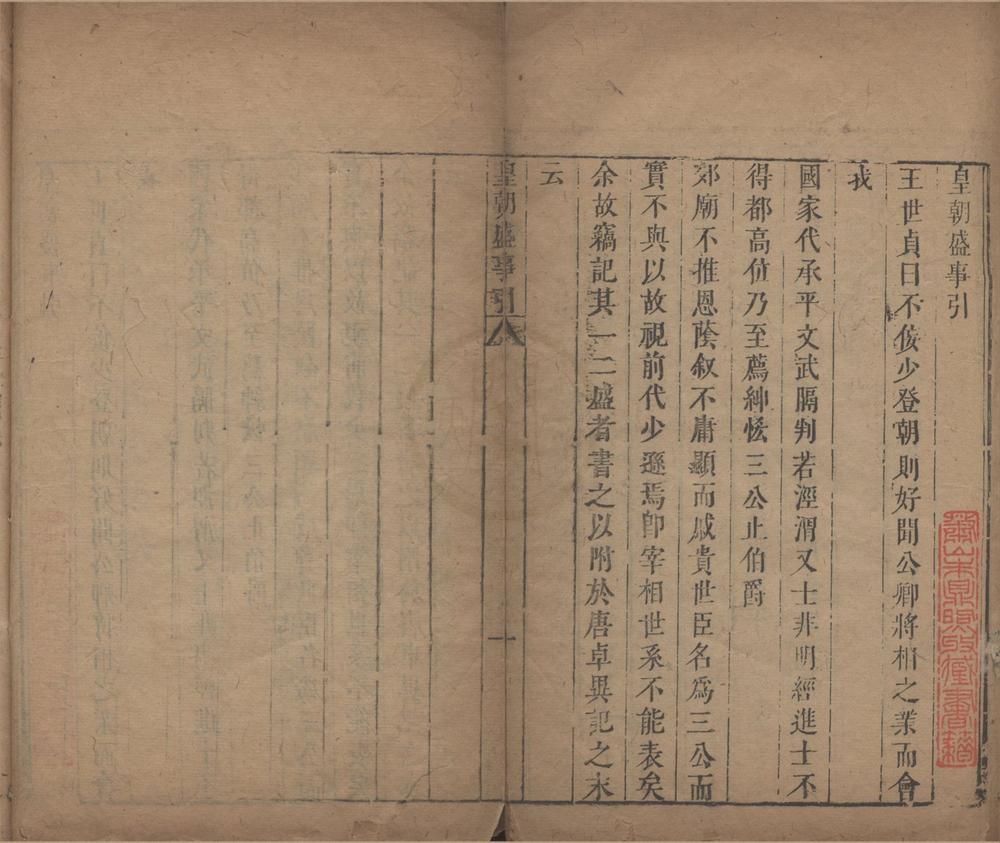 皇朝盛事引
王世貞曰不佞少登朝則好聞公卿將相之業而會
我
國家代承平文武隔判若涇渭又士非明經進士不
得都高位乃至薦紳恠三公止伯爵
郊廟不推恩蔭叙不庸顯而戚貴世臣名爲三公而
實不與以故視前代少遜焉卽宰相世系不能表矣
余故竊記其一二盛者書之以附於唐卓異記之末
云
皇朝盛事引
一
蕭山朱鼎煦收藏書籍